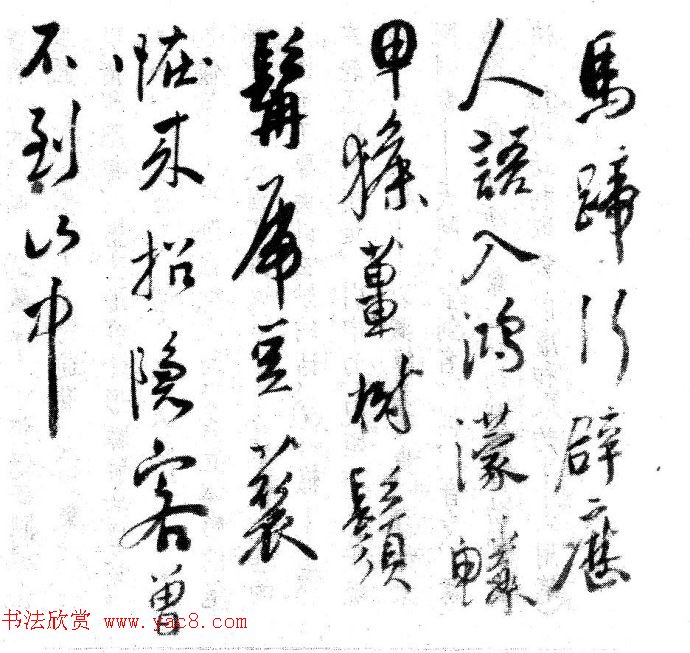 馬蹄行辟歷
人語入鴻濛鱗
甲薑樹鬚
髯虎豆藂
恠來招隱客曾
不到山中
书法欣赏 www.yac8.com